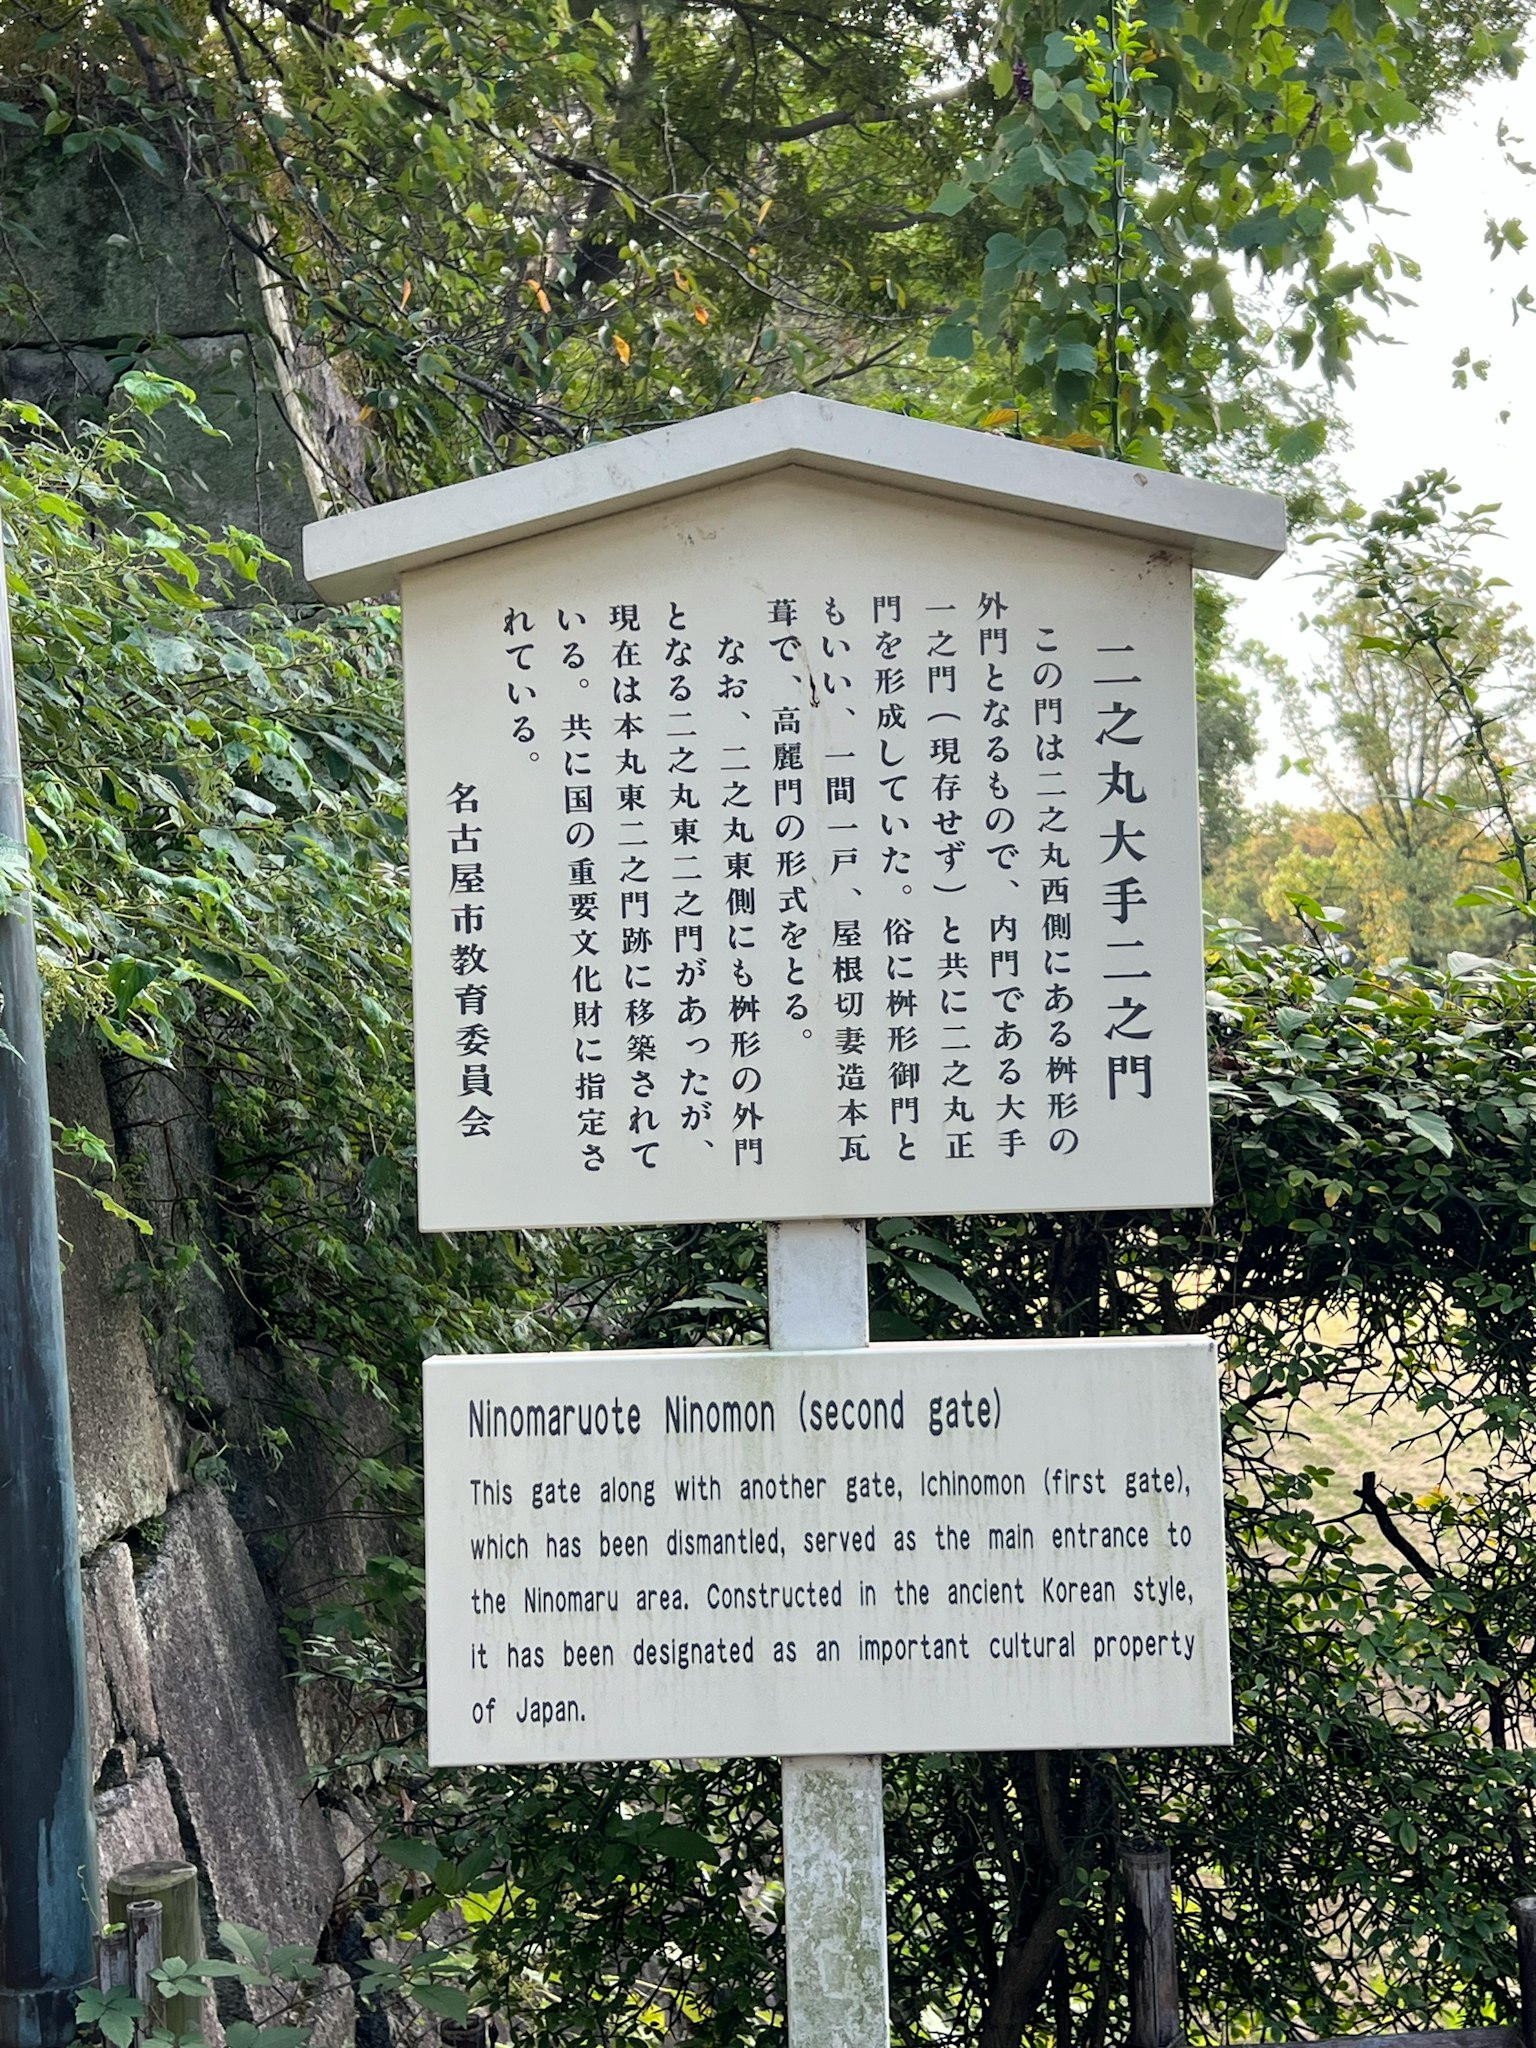 二之丸大手二之門
この門は二之丸西側にある桝形の
外門となるもので、内門である大手
一之門(現存せず)と共に二之丸正
門を形成していた。俗に桝形御門と
もいい、一間一戸、屋根切妻造本瓦
葺で、高麗門の形式をとる。
なお、二之丸東側にも桝形の外門
となる二之丸東二之門があったが、
現在は本丸東二之門跡に移築されて
いる。共に国の重要文化財に指定さ
れている。
名古屋市教育委員会
Ninomaruote Ninomon (second gate)
This gate along with another gate, Ichinomon (first gate),
which has been dismantled, served as the main entrance to
the Ninomaru area. Constructed in the ancient Korean style,
it has been designated as an important cultural property
of Japan.